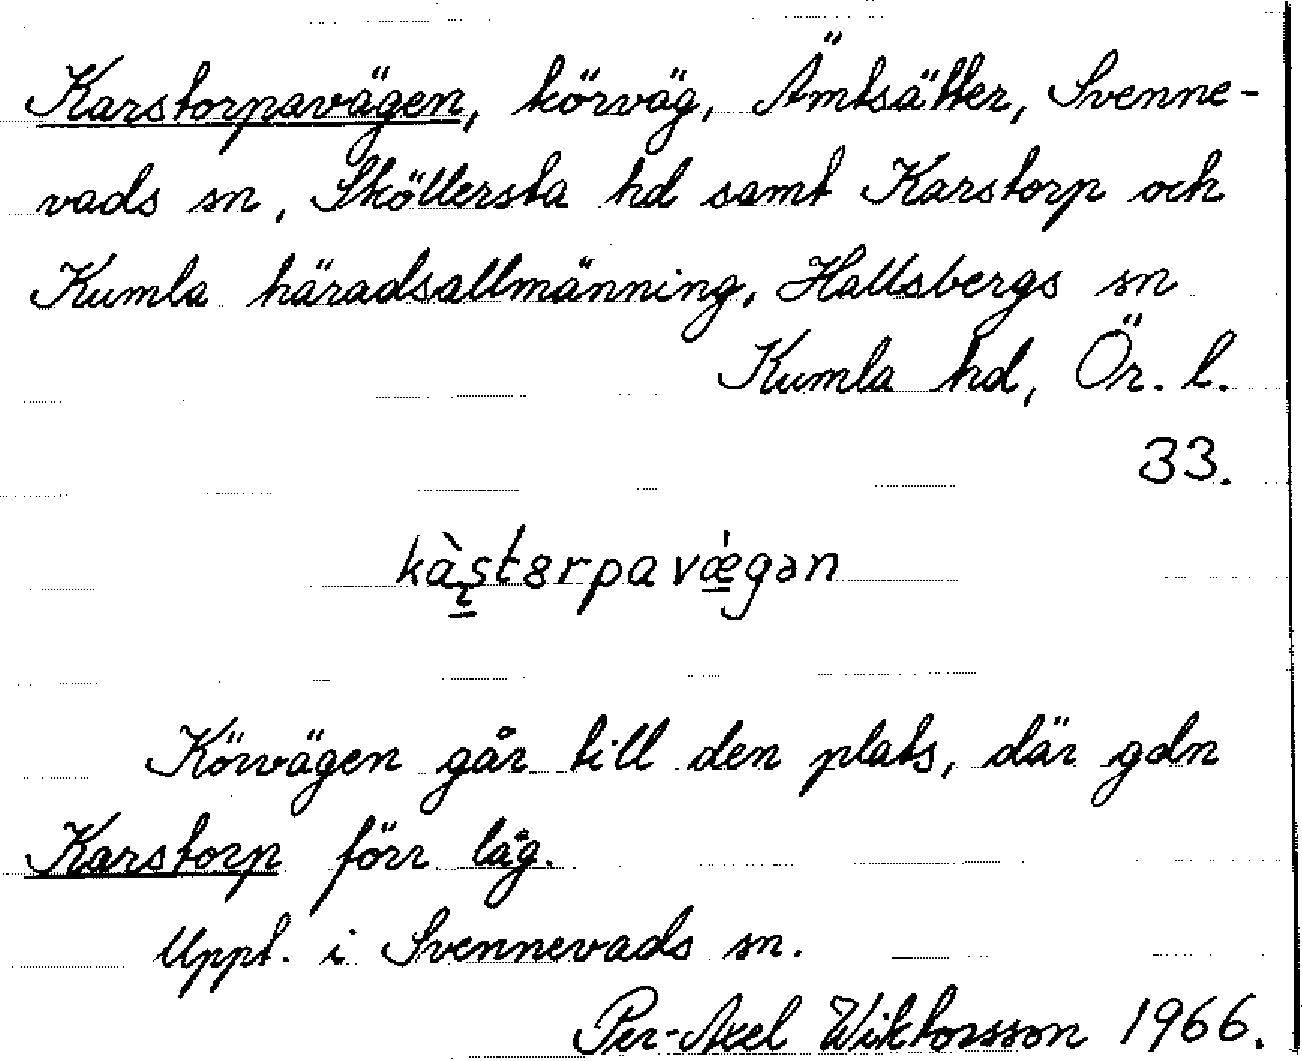 Karstorpavägen, körväg, Ämtsätter, Svenne-
vads sn, Sköllersta hd samt Karstorp och
Kumla häradsallmänning, Hallsbergs sn
Kumla hd, Ör. l.
33.
Körvägen går till den plats, där gdn
Karstorp förr låg.
Uppt. i Svennevads sn.
Per-Axel Wiktorsson 1966.